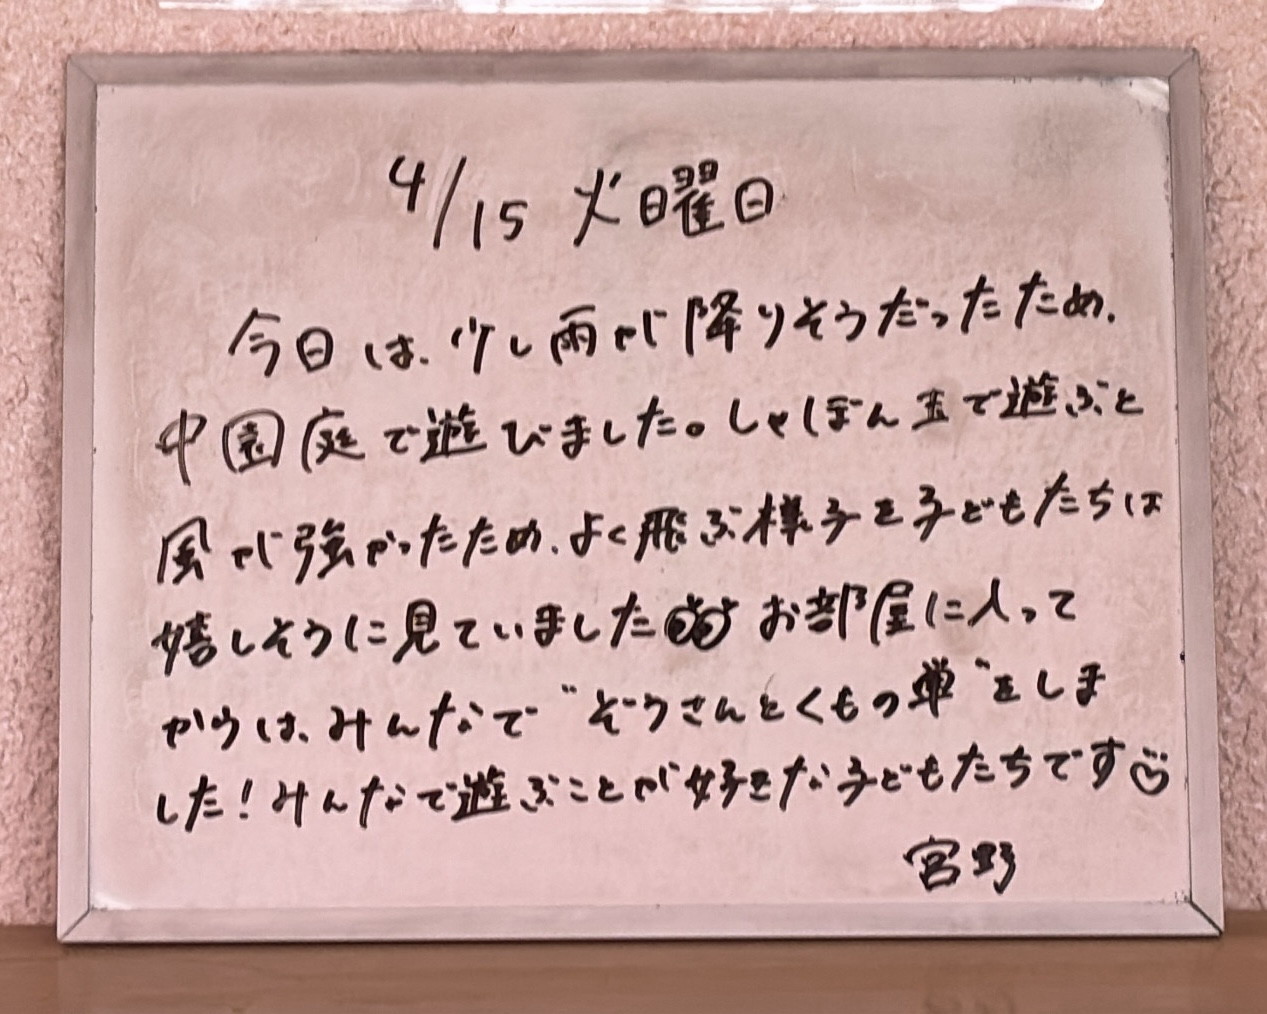 4/15 火曜日
今日は、少し雨が降りそうだったため、
中園庭で遊びました。しゃぼん玉で遊ぶと
風が強かったため、よく飛ぶ様子を子どもたちは
嬉しそうに見ていました お部屋に入って
からは、みんなで"ぞうさんとくもの巣"をしま
した！みんなで遊ぶことが好きな子どもたちです
宮野